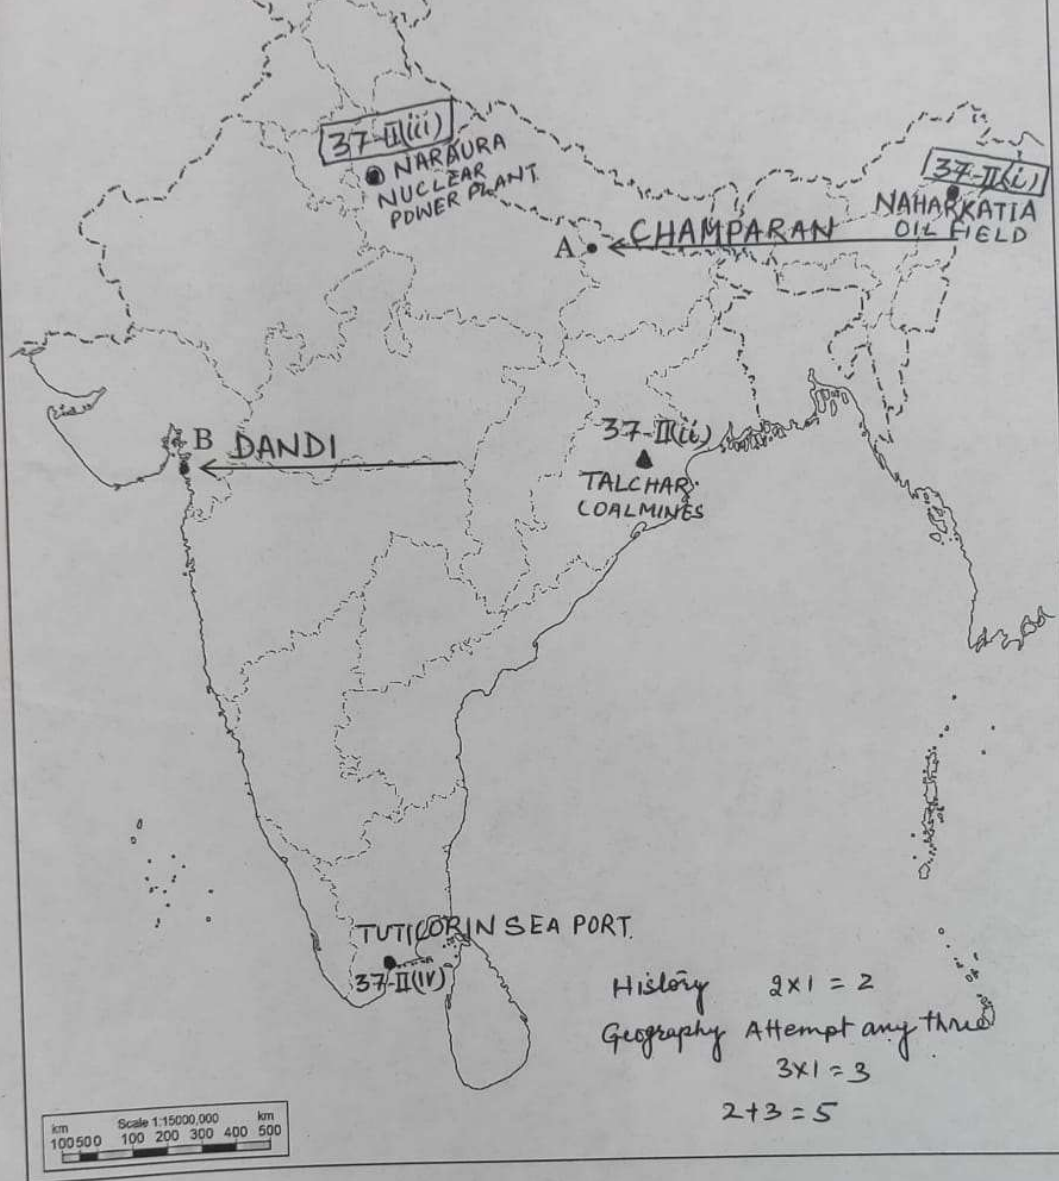 37-II(iii)
NARAURA
NUCLEAR
POWER PLANT
37-II(i)
NAHARKATIA
OIL FIELD
A CHAMPARAN
B DANDI
37-II(ii)
TALCHAR
COALMINES
TUTICORIN SEA PORT
37-II(iv)
History 2×1=2
Geography Attempt any three
3×1=3
2+3=5
Scale 1:15000,000
km km
100 50 0 100 200 300 400 500